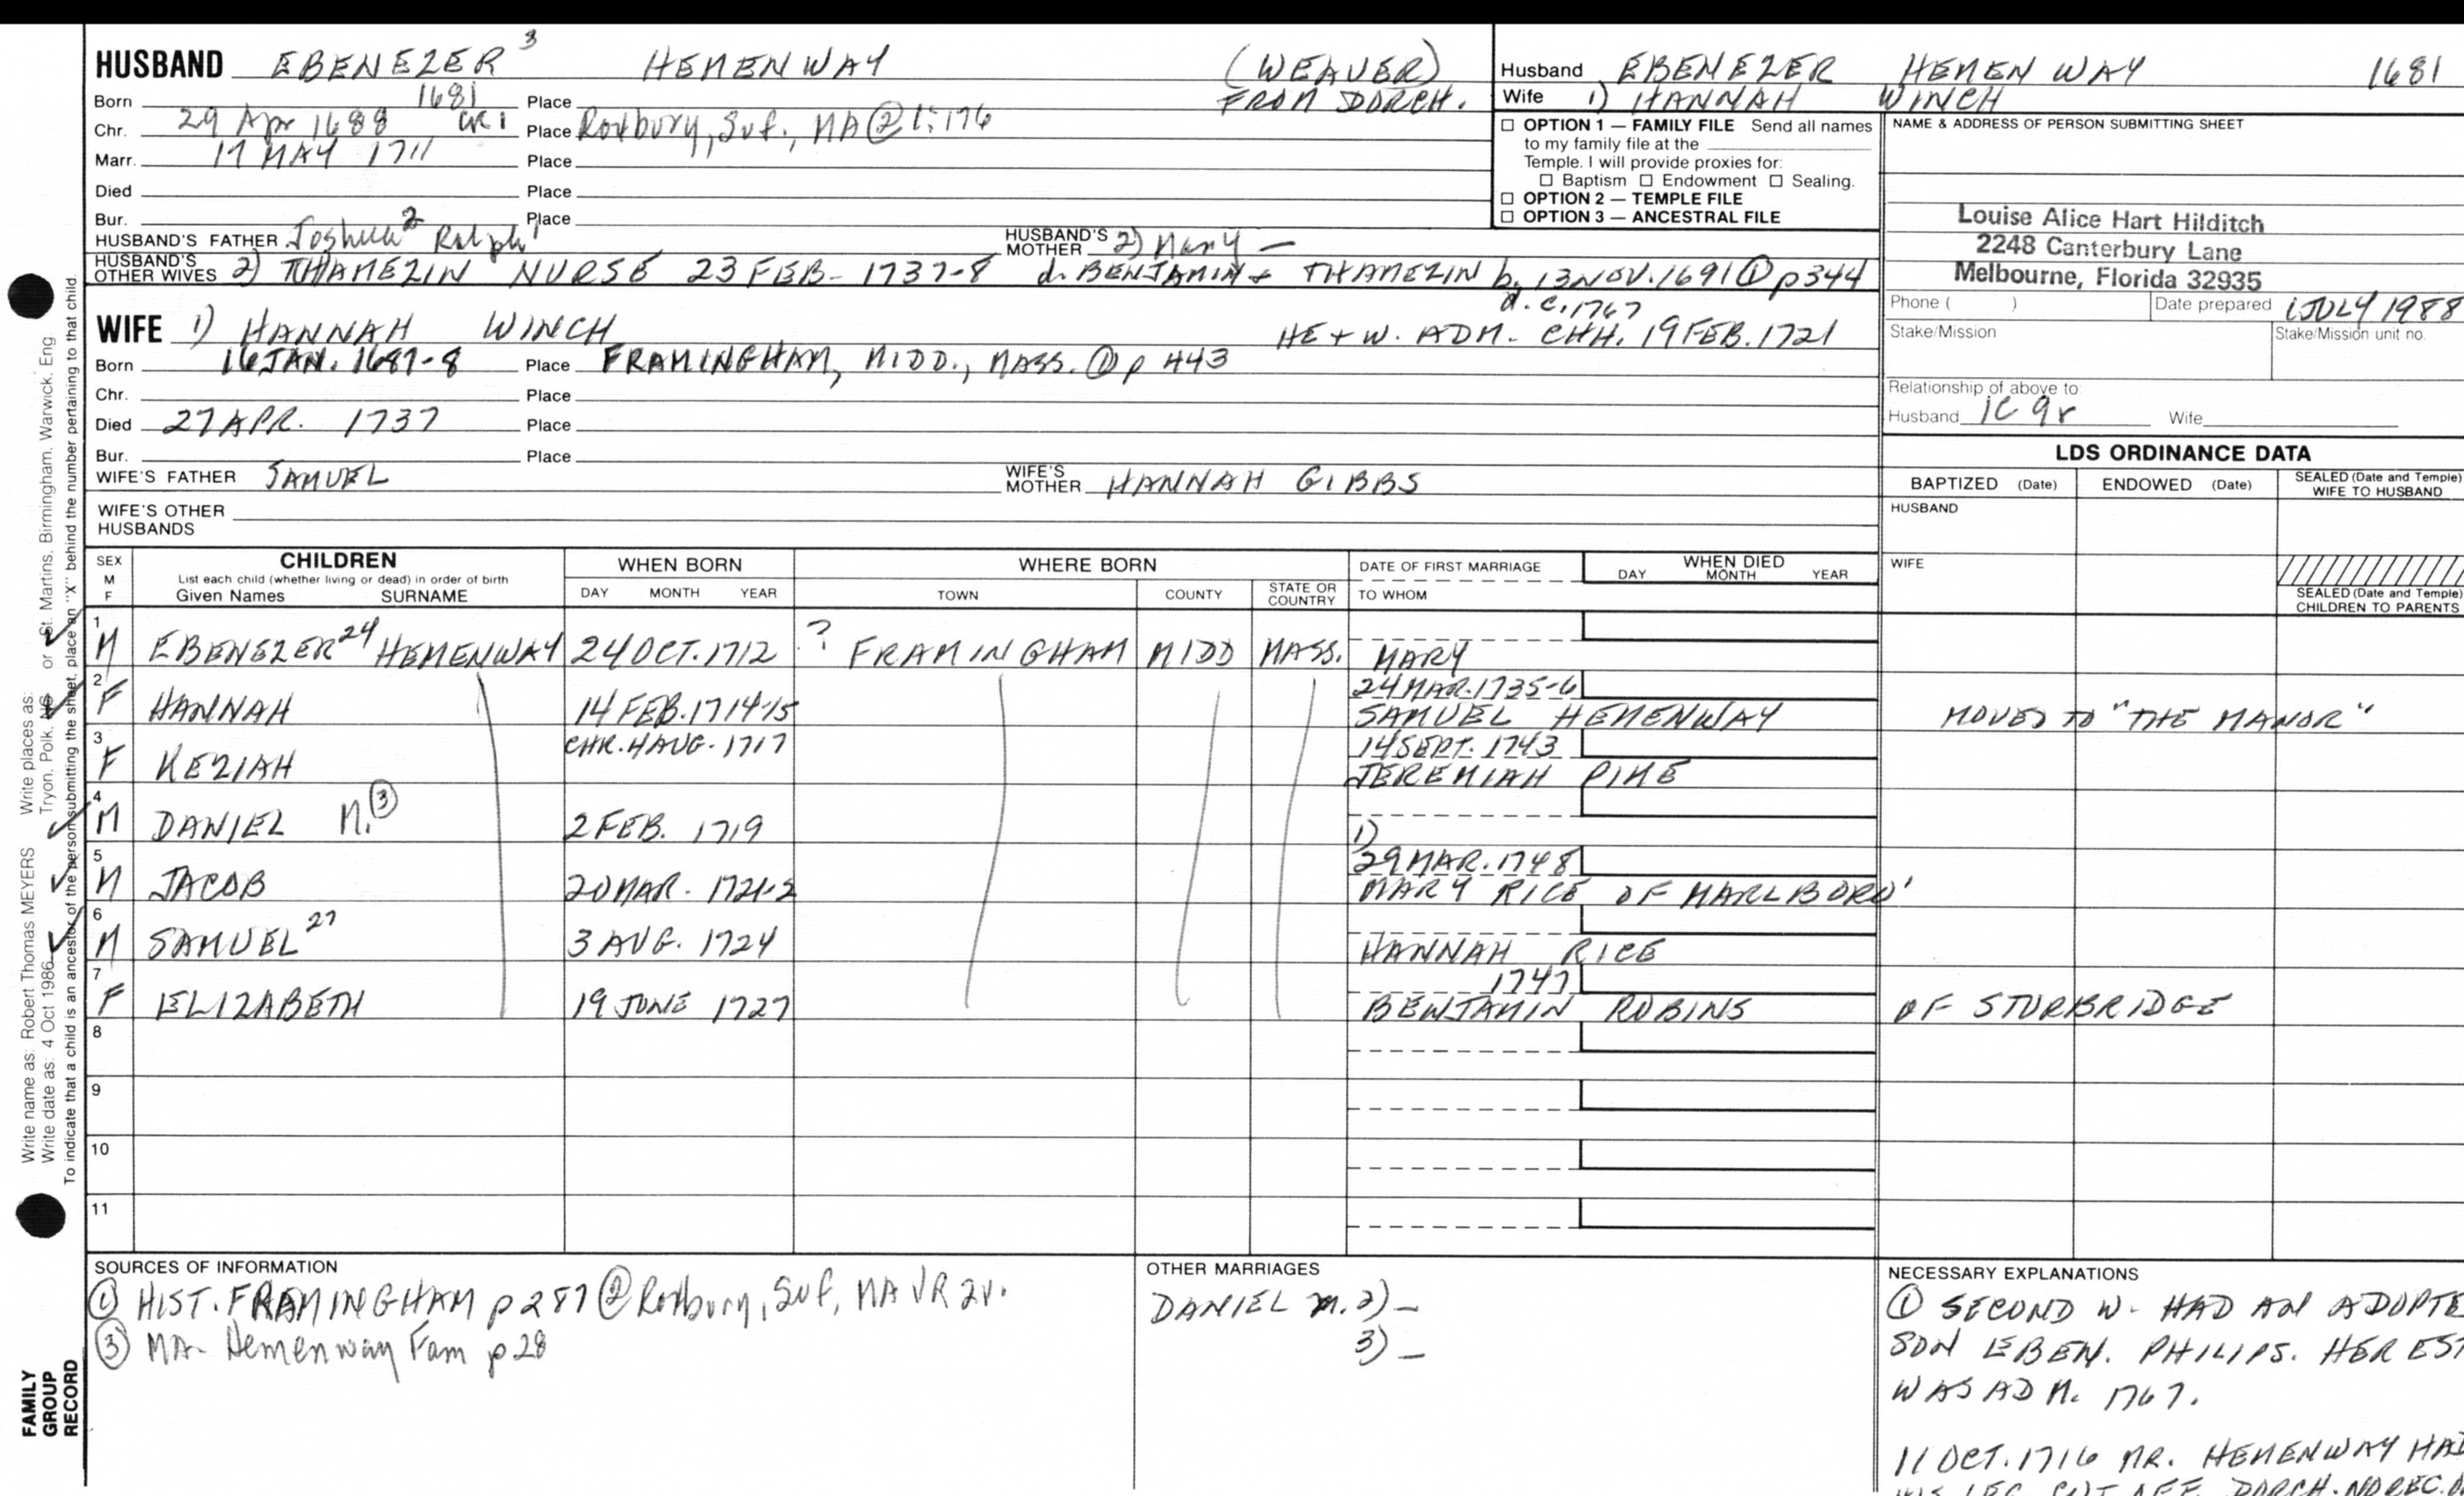 HUSBAND EBENEZER 3 HEMENWAY (WEAVER)
Born 1681 Place FROM DORCH.
Chr. 29 Apr 1688 CR1 Place Roxbury, Suf., MA @ 1:176
Marr. 17 MAY 1711 Place
Died Place
Bur. Place
HUSBAND'S FATHER Joshua 2 Ralph 1 HUSBAND'S MOTHER 2) Mary —
HUSBAND'S OTHER WIVES 2) THAMEZIN NURSE 23 FEB- 1737-8 d. BENJAMIN + THAMEZIN b. 13 NOV. 1691 ① p 344
d. c. 1767
WIFE 1) HANNAH WINCH HE + W. ADM. CHH. 19 FEB. 1721
Born 16 JAN. 1687-8 Place FRAMINGHAM, MIDD., MASS. ① p 443
Chr. Place
Died 27 APR. 1737 Place
Bur. Place
WIFE'S FATHER SAMUEL WIFE'S MOTHER HANNAH GIBBS
WIFE'S OTHER HUSBANDS
Husband EBENEZER HEMENWAY 1681
Wife 1) HANNAH WINCH
☐ OPTION 1 — FAMILY FILE Send all names
to my family file at the
Temple. I will provide proxies for:
☐ Baptism ☐ Endowment ☐ Sealing.
☐ OPTION 2 — TEMPLE FILE
☐ OPTION 3 — ANCESTRAL FILE
NAME & ADDRESS OF PERSON SUBMITTING SHEET
Louise Alice Hart Hilditch
2248 Canterbury Lane
Melbourne, Florida 32935
Phone ( ) Date prepared 1 JULY 1988
Stake/Mission Stake/Mission unit no.
Relationship of above to:
Husband 1C 9r Wife
LDS ORDINANCE DATA
BAPTIZED (Date) ENDOWED (Date) SEALED (Date and Temple) WIFE TO HUSBAND
HUSBAND
WIFE
SEALED (Date and Temple) CHILDREN TO PARENTS
SEX M F
CHILDREN
List each child (whether living or dead) in order of birth
Given Names SURNAME
WHEN BORN
DAY MONTH YEAR
WHERE BORN
TOWN COUNTY STATE OR COUNTRY
DATE OF FIRST MARRIAGE
TO WHOM
WHEN DIED
DAY MONTH YEAR
1 M EBENEZER 24 HEMENWAY 24 OCT. 1712 ? FRAMINGHAM MIDD MASS. MARY
2 F HANNAH 14 FEB. 1714-15 24 MAR. 1735-6 SAMUEL HEMENWAY MOVED TO "THE MANOR"
3 F KEZIAH CHR. 4 AUG. 1717 14 SEPT. 1743 JEREMIAH PIKE
4 M DANIEL M. ③ 2 FEB. 1719 1)
5 M JACOB 20 MAR. 1721-2 29 MAR. 1748 MARY RICE OF MARLBORO'
6 M SAMUEL 27 3 AUG. 1724 HANNAH RICE
7 F ELIZABETH 19 JUNE 1727 1747 BENJAMIN ROBINS OF STURBRIDGE
8
9
10
11
SOURCES OF INFORMATION
① HIST. FRAMINGHAM p 287 ② Roxbury, Suf, MA VR 2v.
③ MA- Hemenway Fam p 28
OTHER MARRIAGES
DANIEL m. 2) —
3) —
NECESSARY EXPLANATIONS
① SECOND W. HAD AN ADOPTE
SON EBEN. PHILIPS. HER EST
WAS ADM. 1767.
11 OCT. 1716 MR. HEMENWAY HAD
HIS LEG CUT OFF. DORCH.
Write name as: Robert Thomas MEYERS Write places as:
Write date as: 4 Oct 1986 Tryon, Polk, NC or St. Martins, Birmingham, Warwick, Eng.
To indicate that a child is an ancestor of the person submitting the sheet, place an "X" behind the number pertaining to that child.
FAMILY
GROUP
RECORD